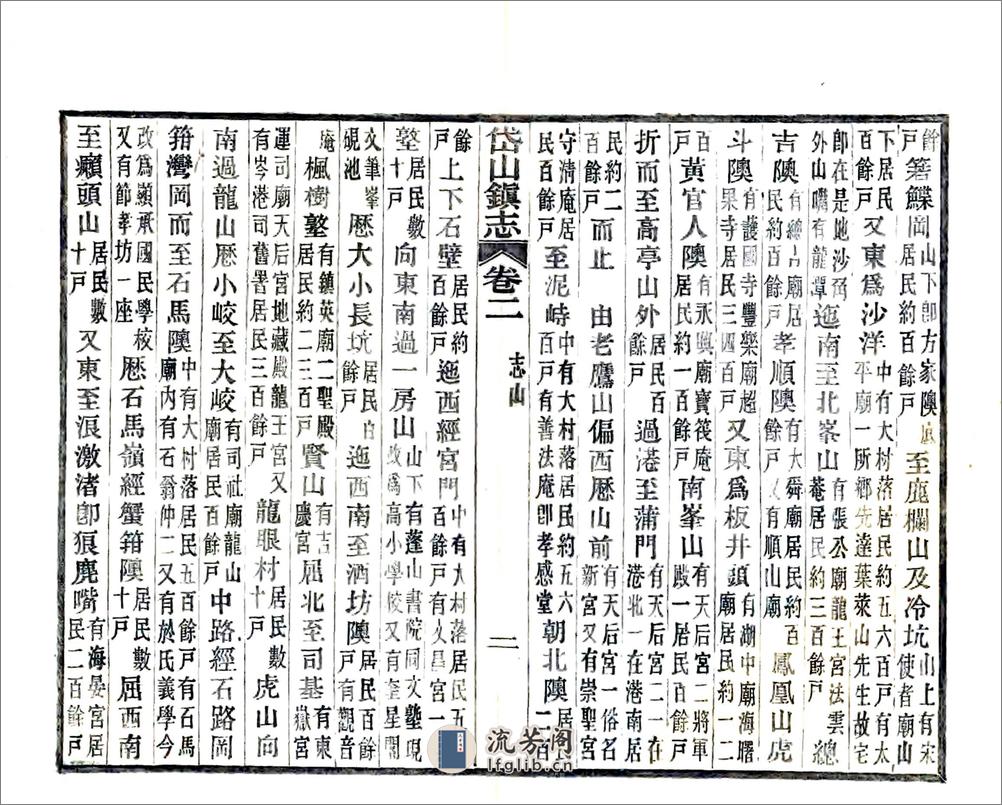 餘戶箬鰈岡山下卽方家隩底居民約百餘戶至鹿欄山及冷坑山上有宋使者廟山
下居民百餘戶又東爲沙洋中有大村落居民約五六百戶有太平廟一所鄉先達葉萊山先生故宅
卽在是地沙角外山嘴有龍潭迤南至北峯山有張公廟龍王宮法雲菴居民約三百餘戶總
吉隩有總吉廟居民約百餘戶孝順隩有大舜廟居民約百餘戶又有順山廟鳳凰山虎
斗隩有護國寺豐樂廟超果寺居民三四百戶又東爲板井頭有湖中廟海曙廟居民約一二
百戶黃官人隩有永興廟寶筏庵居民約一百餘戶南峯山有天后宮二將軍殿一居民百餘戶
折而至高亭山外居民百餘戶過港至蒲門有天后宮二一在港北一在港南居
民約二百餘戶而止　由老鷹山偏西歷山前有天后宮一俗名新宮又有崇聖宮
守清庵居民百餘戶至泥峙中有大村落居民約五六百戶有善法庵卽孝感堂朝北隩居民二百
岱山鎮志　卷二　志山　二
餘戶上下石壁居民約百餘戶迤西經宮門中有大村落居民五百餘戶有文昌宮一
墪居民數十戶向東南過一房山山下有蓬山書院同文墪現改爲高小學校又有奎星閣
文筆峯硯池歷大小長坑居民百餘戶迤西南至酒坊隩居民百餘戶有觀音
庵楓樹墪有鎮英廟二聖殿居民約二三百戶賢山有吉慶宮屈北至司基有東嶽宮
運司廟天后宮地藏殿龍王宮又有岑港司舊署居民三百餘戶龍眼村居民數十戶虎山向
南過龍山歷小峧至大峧有司社廟龍山廟居民百餘戶中路經石路岡
箝灣岡而至石馬隩中有大村落居民五百戶有石馬廟內有石翁仲二又有於氏義學今
改爲顯承國民學校又有節孝坊一座歷石馬嶺經蟹箝隩居民數十戶屈西南
至癩頭山居民數十戶又東至浪激渚卽狼鹿嘴有海晏宮居民二百餘戶
流芳阁
lfglib.cn